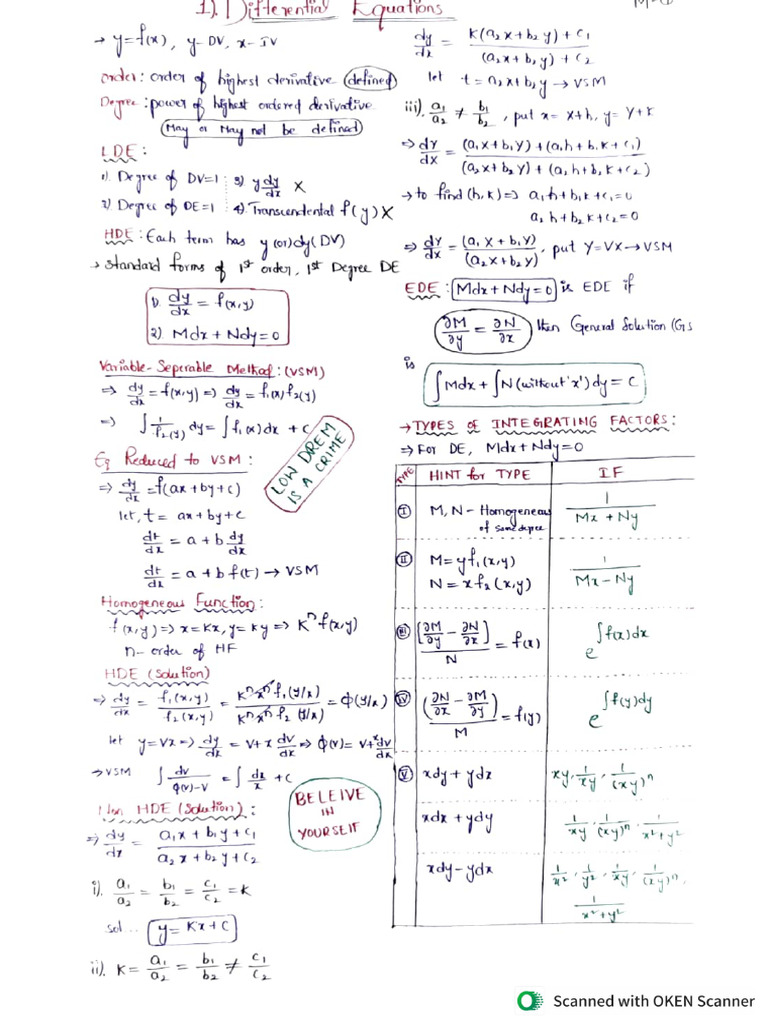 1). Differential Equations
→ y=f(x), y-DV, x-IV
Order: order of highest derivative (defined)
Degree: power of highest ordered derivative
(May or May not be defined)
LDE:
1). Degree of DV=1 3) y dy/dx X
2) Degree of DE=1 4). Transcendental f(y) X
HDE: Each term has y (or) dy (DV)
→ Standard forms of 1st order, 1st Degree DE
1). dy/dx = f(x,y)
2). Mdx+Ndy=0
Variable-Seperable Method: (VSM)
⇒ dy/dx = f(x,y) ⇒ dy/dx = f₁(x)f₂(y)
⇒ ∫ 1/f₂(y) dy = ∫f₁(x)dx + C
LOW DREM
IS A CRIME
Eq Reduced to VSM:
⇒ dy/dx = f(ax+by+c)
let, t = ax+by+c
dt/dx = a+b dy/dx
dt/dx = a+b f(t) → VSM
Homogeneous Function:
f(x,y) ⇒ x=Kx, y=Ky ⇒ Kⁿ f(x,y)
n- order of HF
HDE (solution)
⇒ dy/dx = f₁(x,y)/f₂(x,y) = Kⁿxⁿ f₁(y/x)/Kⁿxⁿ f₂(y/x) = φ(y/x)
let y=Vx ⇒ dy/dx = v+x dv/dx ⇒ φ(v)= v+x dv/dx
→ VSM ∫ dv/(φ(v)-v) = ∫ dx/x + C
Non HDE (Solution):
⇒ dy/dx = (a₁x+b₁y+c₁)/(a₂x+b₂y+c₂)
BELEIVE
IN
YOURSELF
i). a₁/a₂ = b₁/b₂ = c₁/c₂ = K
sol... y=Kx+C
ii). K = a₁/a₂ = b₁/b₂ ≠ c₁/c₂
dy/dx = (K(a₂x+b₂y)+c₁)/((a₂x+b₂y)+c₂)
let t=a₂x+b₂y → VSM
iii). a₁/a₂ ≠ b₁/b₂, put x= X+h, y= Y+K
⇒ dY/dX = ((a₁X+b₁Y)+(a₁h+b₁K+c₁))/((a₂X+b₂Y)+(a₂h+b₂K+c₂))
→ to find (h,K) ⇒ a₁h+b₁K+c₁=0
a₂h+b₂K+c₂=0
⇒ dY/dX = (a₁X+b₁Y)/(a₂X+b₂Y), put Y=VX → VSM
EDE: Mdx+Ndy=0 is EDE if
∂M/∂y = ∂N/∂x then General Solution (GS
is
∫Mdx + ∫N(without 'x')dy = C
→ TYPES OF INTEGRATING FACTORS:
⇒ For DE, Mdx+Ndy=0
TYPE HINT for TYPE IF
I M, N - Homogeneous of same degree 1/(Mx+Ny)
II M=yf₁(x,y) N=xf₂(x,y) 1/(Mx-Ny)
III [∂M/∂y - ∂N/∂x]/N = f(x) e^∫f(x)dx
IV (∂N/∂x - ∂M/∂y)/M = f(y) e^∫f(y)dy
V xdy+ydx xy, 1/xy, 1/(xy)ⁿ
xdx+ydy 1/xy, 1/(xy)ⁿ, 1/(x²+y²)
xdy-ydx 1/x², 1/y², 1/xy, 1/(xy)ⁿ, 1/(x²+y²)
Scanned with OKEN Scanner